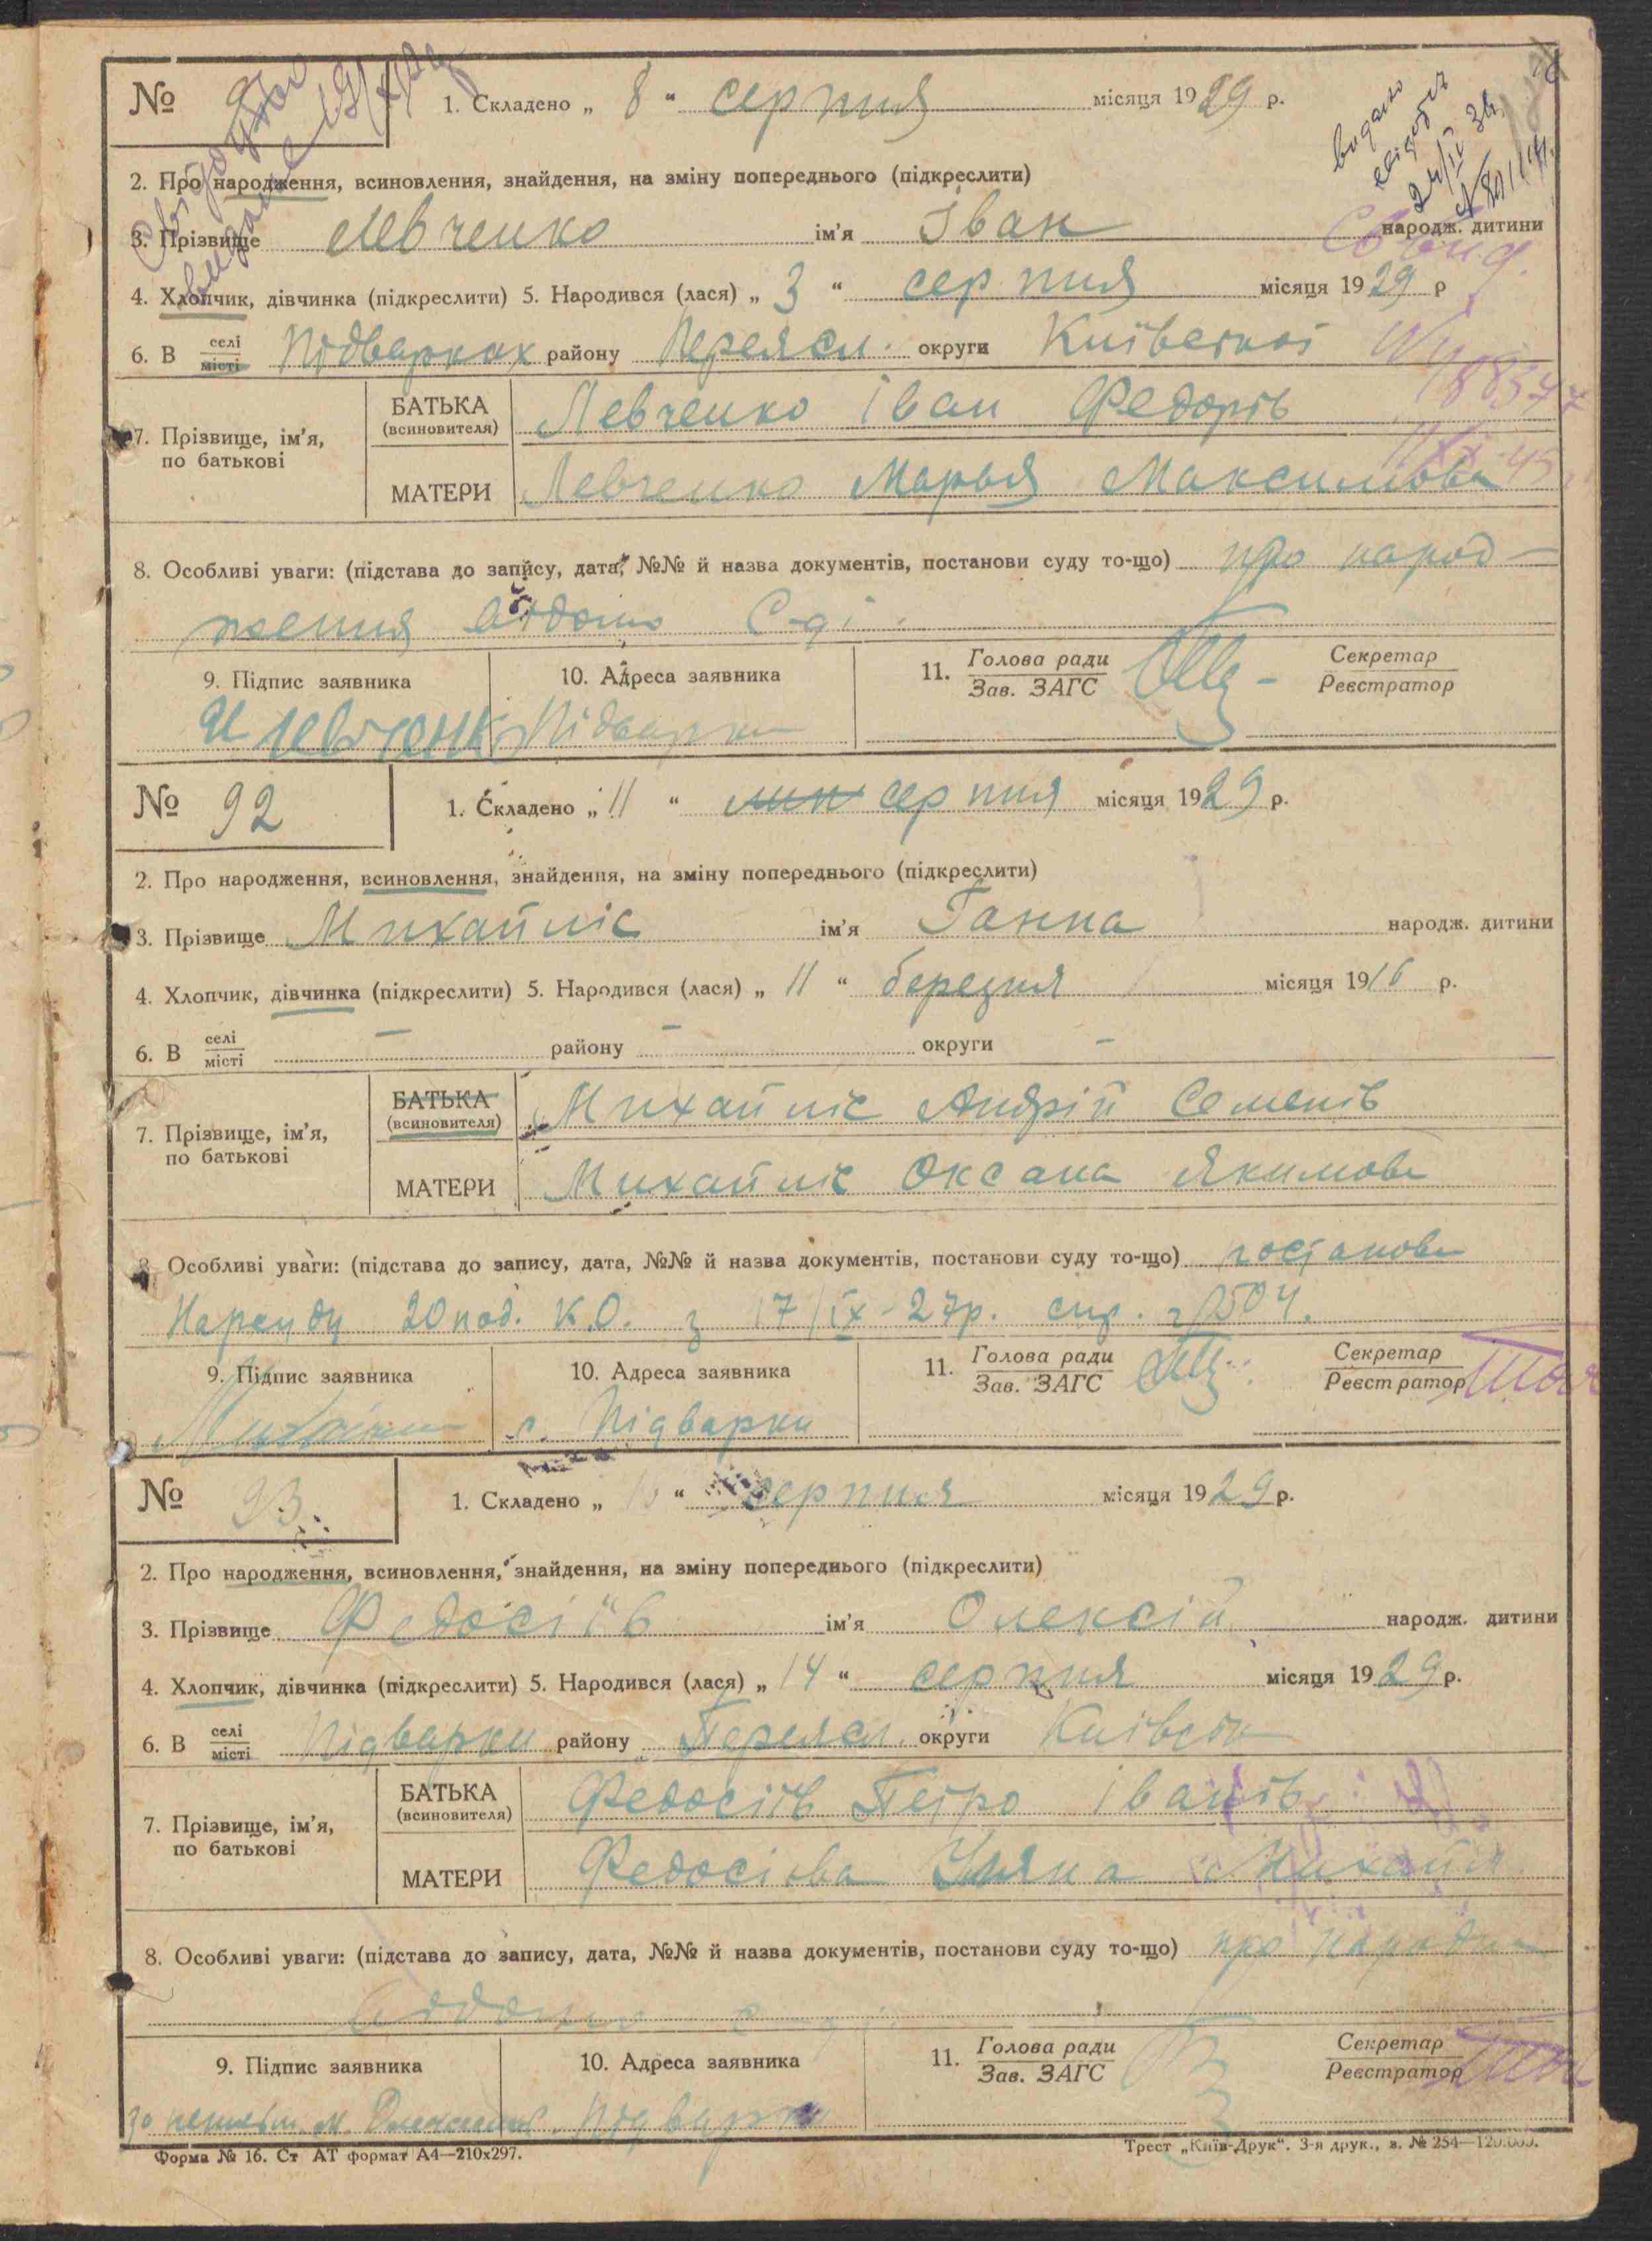 № 1. Складено „ 8 “ серпня місяця 1929 р.
2. Про народження, всиновлення, знайдення, на зміну попереднього (підкреслити)
3. Прізвище Левченко ім’я Іван народж. дитини
4. Хлопчик, дівчинка (підкреслити) 5. Народився (лася) „ 3 “ серпня місяця 1929 р
6. В селі місті Підварках району Переясл. округи Київської
7. Прізвище, ім’я, по батькові
БАТЬКА (всиновителя) Левченко Іван Федорів
МАТЕРИ Левченко Марья Максимова
8. Особливі уваги: (підстава до запису, дата, №№ й назва документів, постанови суду то-що) про народ-
ження відомо С-ді
9. Підпис заявника 10. Адреса заявника 11. Голова ради Зав. ЗАГС Секретар Реєстратор
Підварки
№ 92 1. Складено „ 11 “ серпня місяця 1929 р.
2. Про народження, всиновлення, знайдення, на зміну попереднього (підкреслити)
3. Прізвище Михайліс ім’я Ганна народж. дитини
4. Хлопчик, дівчинка (підкреслити) 5. Народився (лася) „ 11 “ березня місяця 1916 р.
6. В селі місті – району – округи –
7. Прізвище, ім’я, по батькові
БАТЬКА (всиновителя) Михайліс Андрій Семенів
МАТЕРИ Михайліс Оксана Якимова
8. Особливі уваги: (підстава до запису, дата, №№ й назва документів, постанови суду то-що) постанова
Нарсуду 20 К.О. з 17/IX-27р.
9. Підпис заявника 10. Адреса заявника 11. Голова ради Зав. ЗАГС Секретар Реєстратор
с. Підварки
№ 93. 1. Складено „ “ серпня місяця 1929 р.
2. Про народження, всиновлення, знайдення, на зміну попереднього (підкреслити)
3. Прізвище Федосіїв ім’я Олексій народж. дитини
4. Хлопчик, дівчинка (підкреслити) 5. Народився (лася) „ 14 “ серпня місяця 1929 р.
6. В селі місті Підварки району Переясл. округи Київськ
7. Прізвище, ім’я, по батькові
БАТЬКА (всиновителя) Федосіїв Петро Іванів
МАТЕРИ Федосіова Уляна Михайл
8. Особливі уваги: (підстава до запису, дата, №№ й назва документів, постанови суду то-що) про народж
відомо
9. Підпис заявника 10. Адреса заявника 11. Голова ради Зав. ЗАГС Секретар Реєстратор
Підварки
Форма № 16. Ст АТ формат А4—210х297. Трест „Київ-Друк“. 3-я друк., з. № 254—120.000.